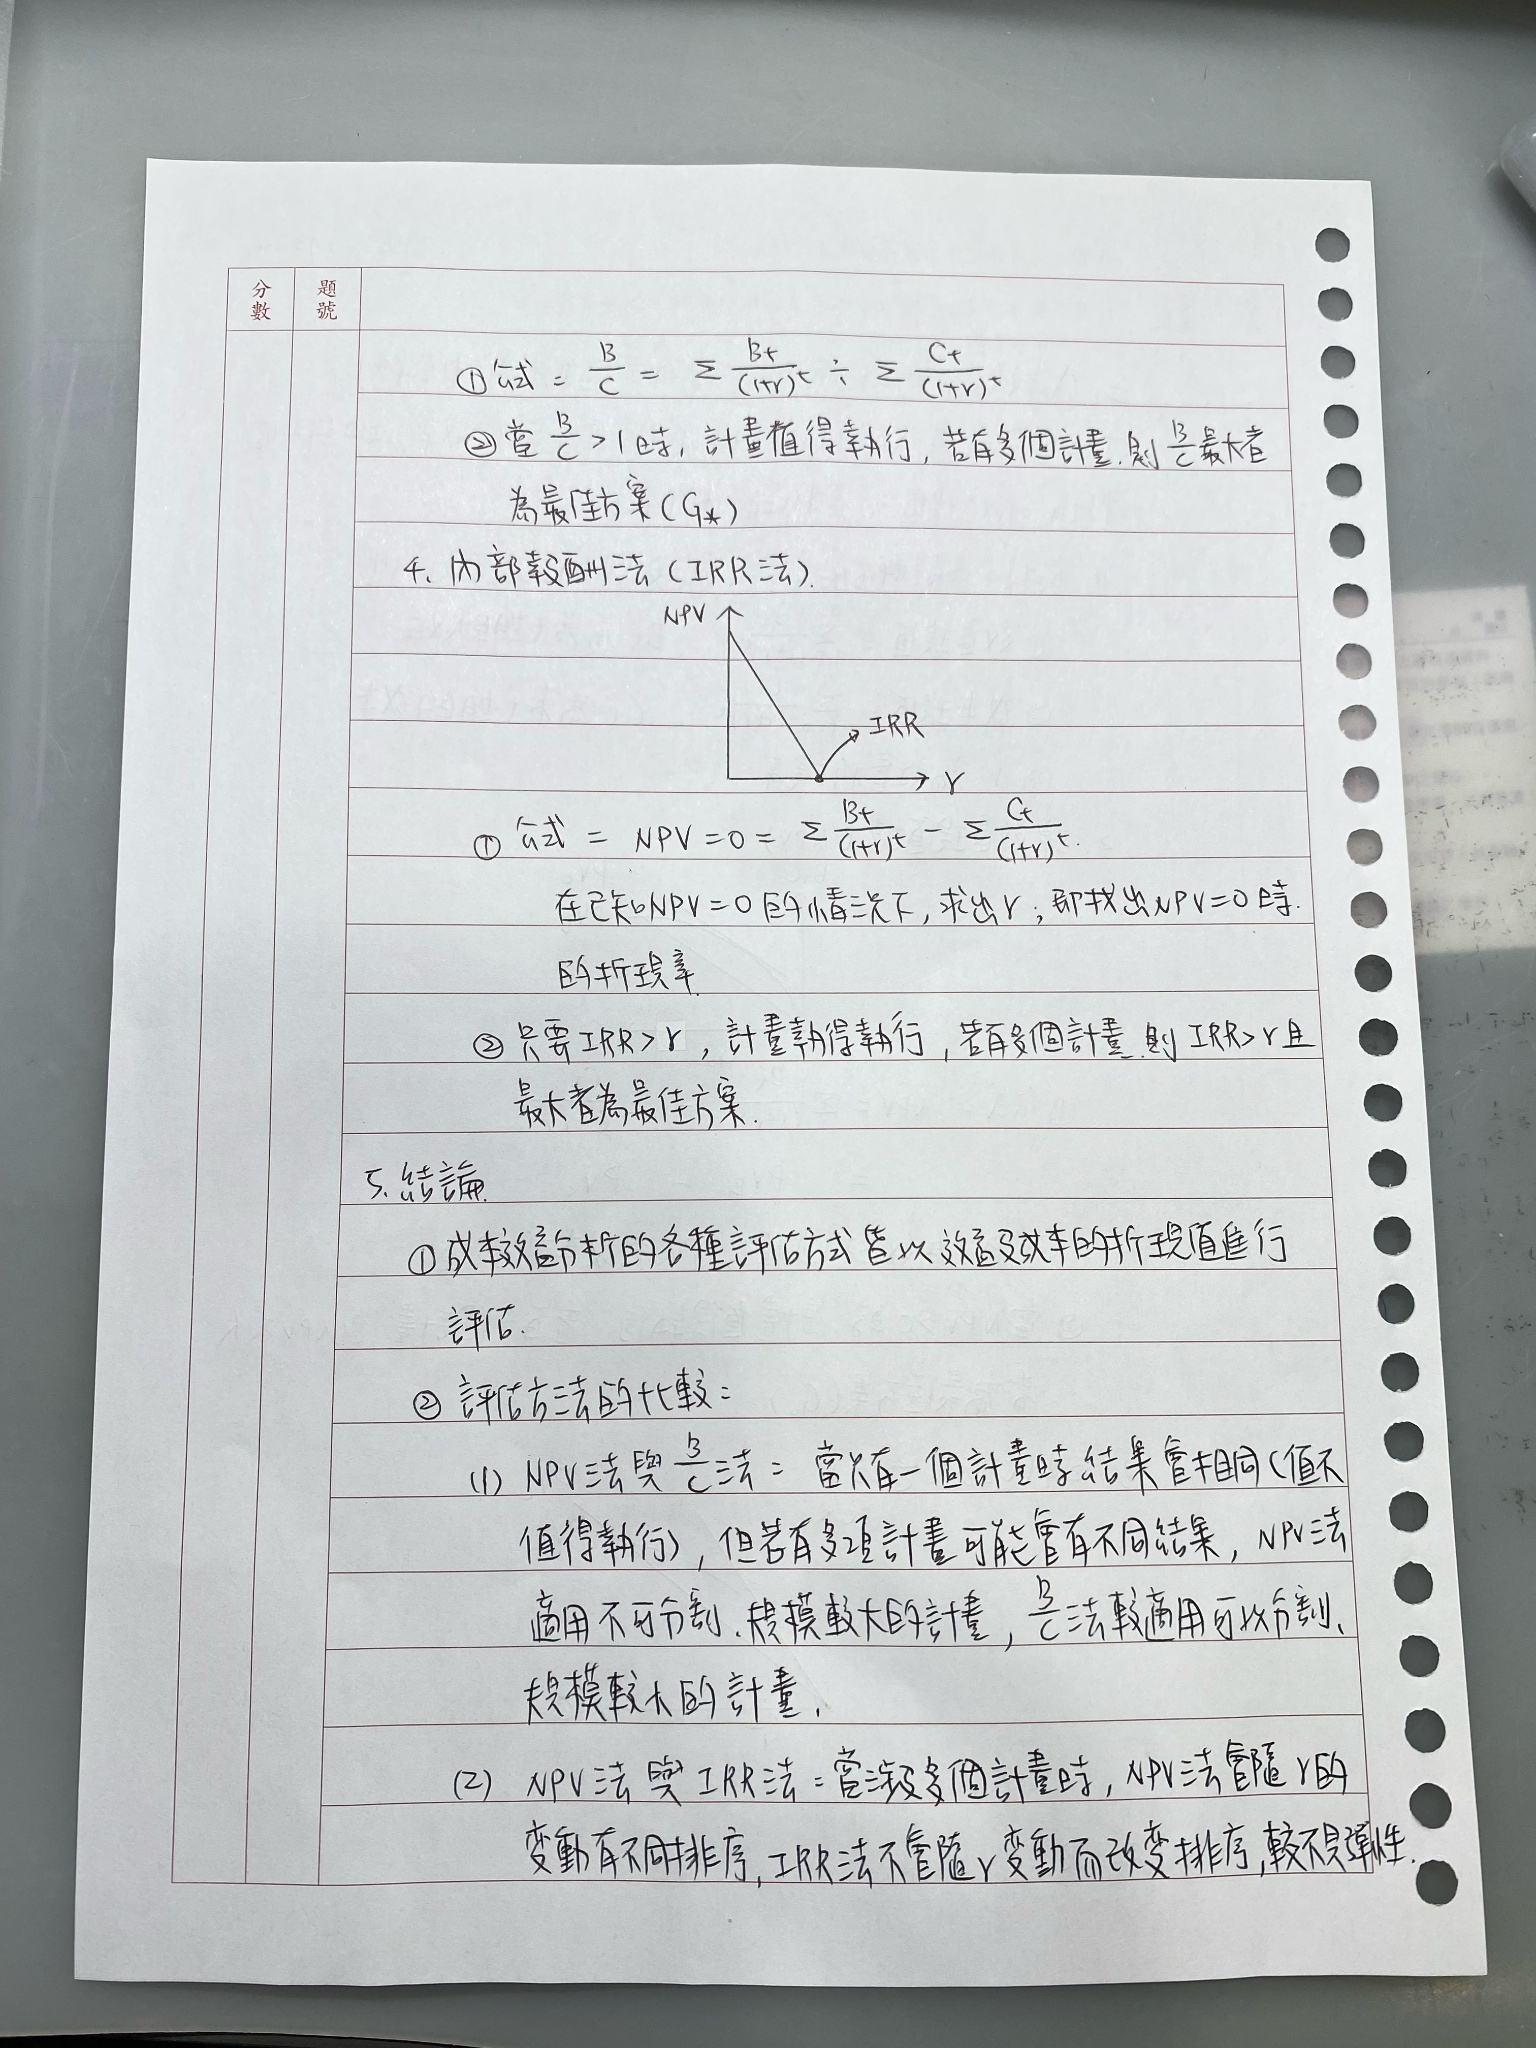 分數 題號
① 公式 = B/C = Σ Bt/(1+r)^t ÷ Σ Ct/(1+r)^t
② 當 B/C > 1 時, 計畫值得執行, 若有多個計畫, 則 B/C 最大者
為最佳方案(G*)
4. 內部報酬法 (IRR法).
NPV
IRR
r
① 公式 = NPV = 0 = Σ Bt/(1+r)^t - Σ Ct/(1+r)^t.
在已知NPV=0的情況下, 求出r, 即找出NPV=0時.
的折現率
② 只要IRR>r, 計畫執得執行, 若有多個計畫, 則IRR>r且
最大者為最佳方案.
5. 結論.
① 成本效益分析的各種評估方式皆以效益及成本的折現值進行
評估.
② 評估方法的比較:
(1) NPV法與 B/C 法: 當只有一個計畫時結果會相同(值不
值得執行), 但若有多項計畫可能會有不同結果, NPV法
適用不可分割、規模較大的計畫, B/C 法較適用可以分割、
規模較大的計畫.
(2) NPV法與IRR法: 當涉及多個計畫時, NPV法會隨r的
變動有不同排序, IRR法不會隨r變動而改變排序, 較不具彈性.